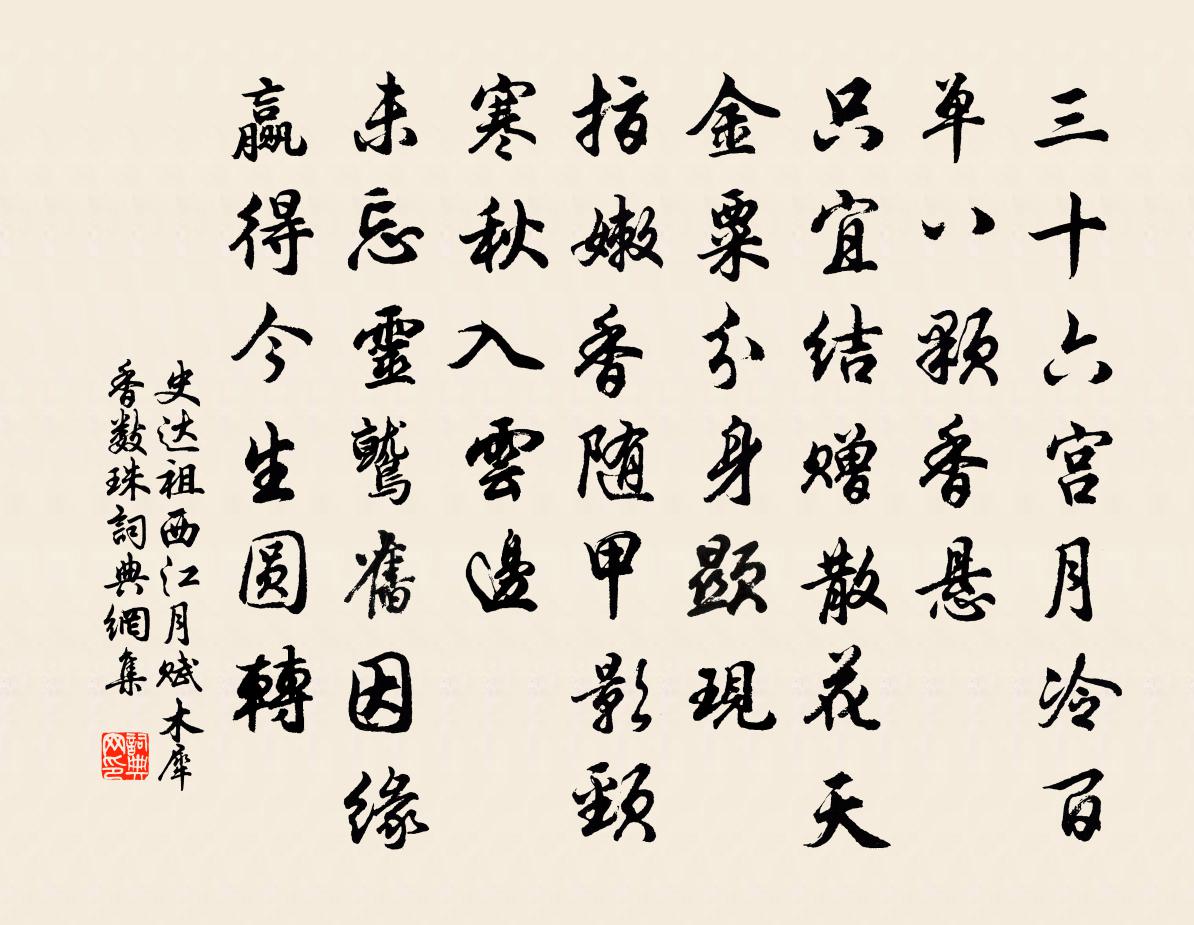 三十六宫月冷百
单八顆香悬
只宜结赠散花天
金粟分身顕現
指嫩香随甲影頸
寒秋入雲邊
未忘靈鷲舊因缘
赢得今生圆轉
史达祖西江月赋木犀
香数珠詞典網集
詞典网印